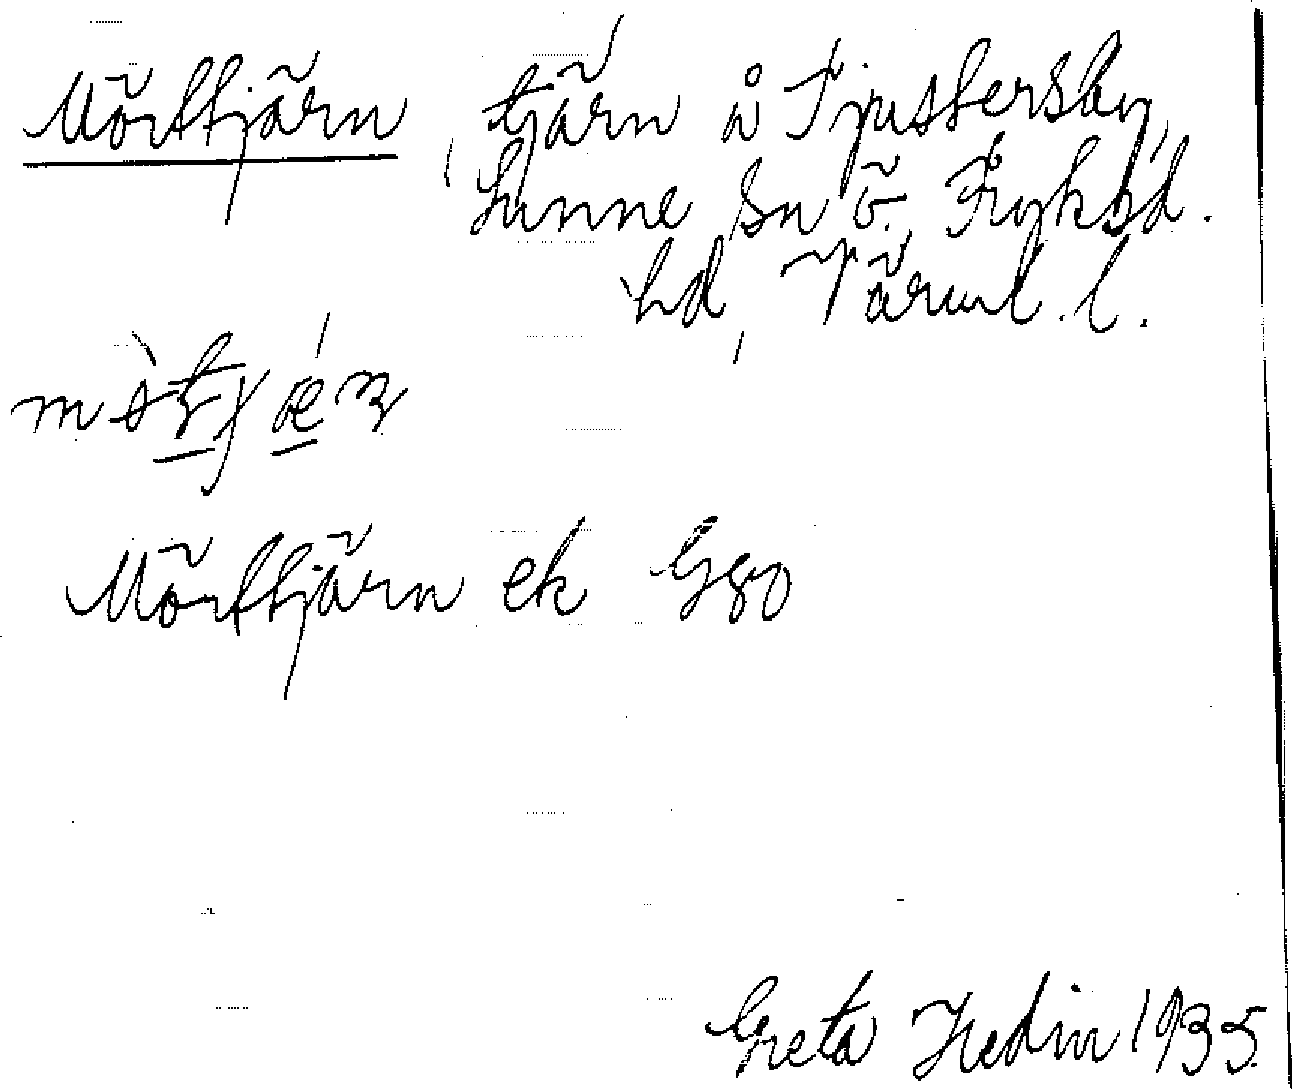 Mörttjärn, tjärn å Tjustersby,
Sunne sn Ö. Fryksd.
hd, Värml. l.
Mörttjärn ek G80
Greta Hedin 1935